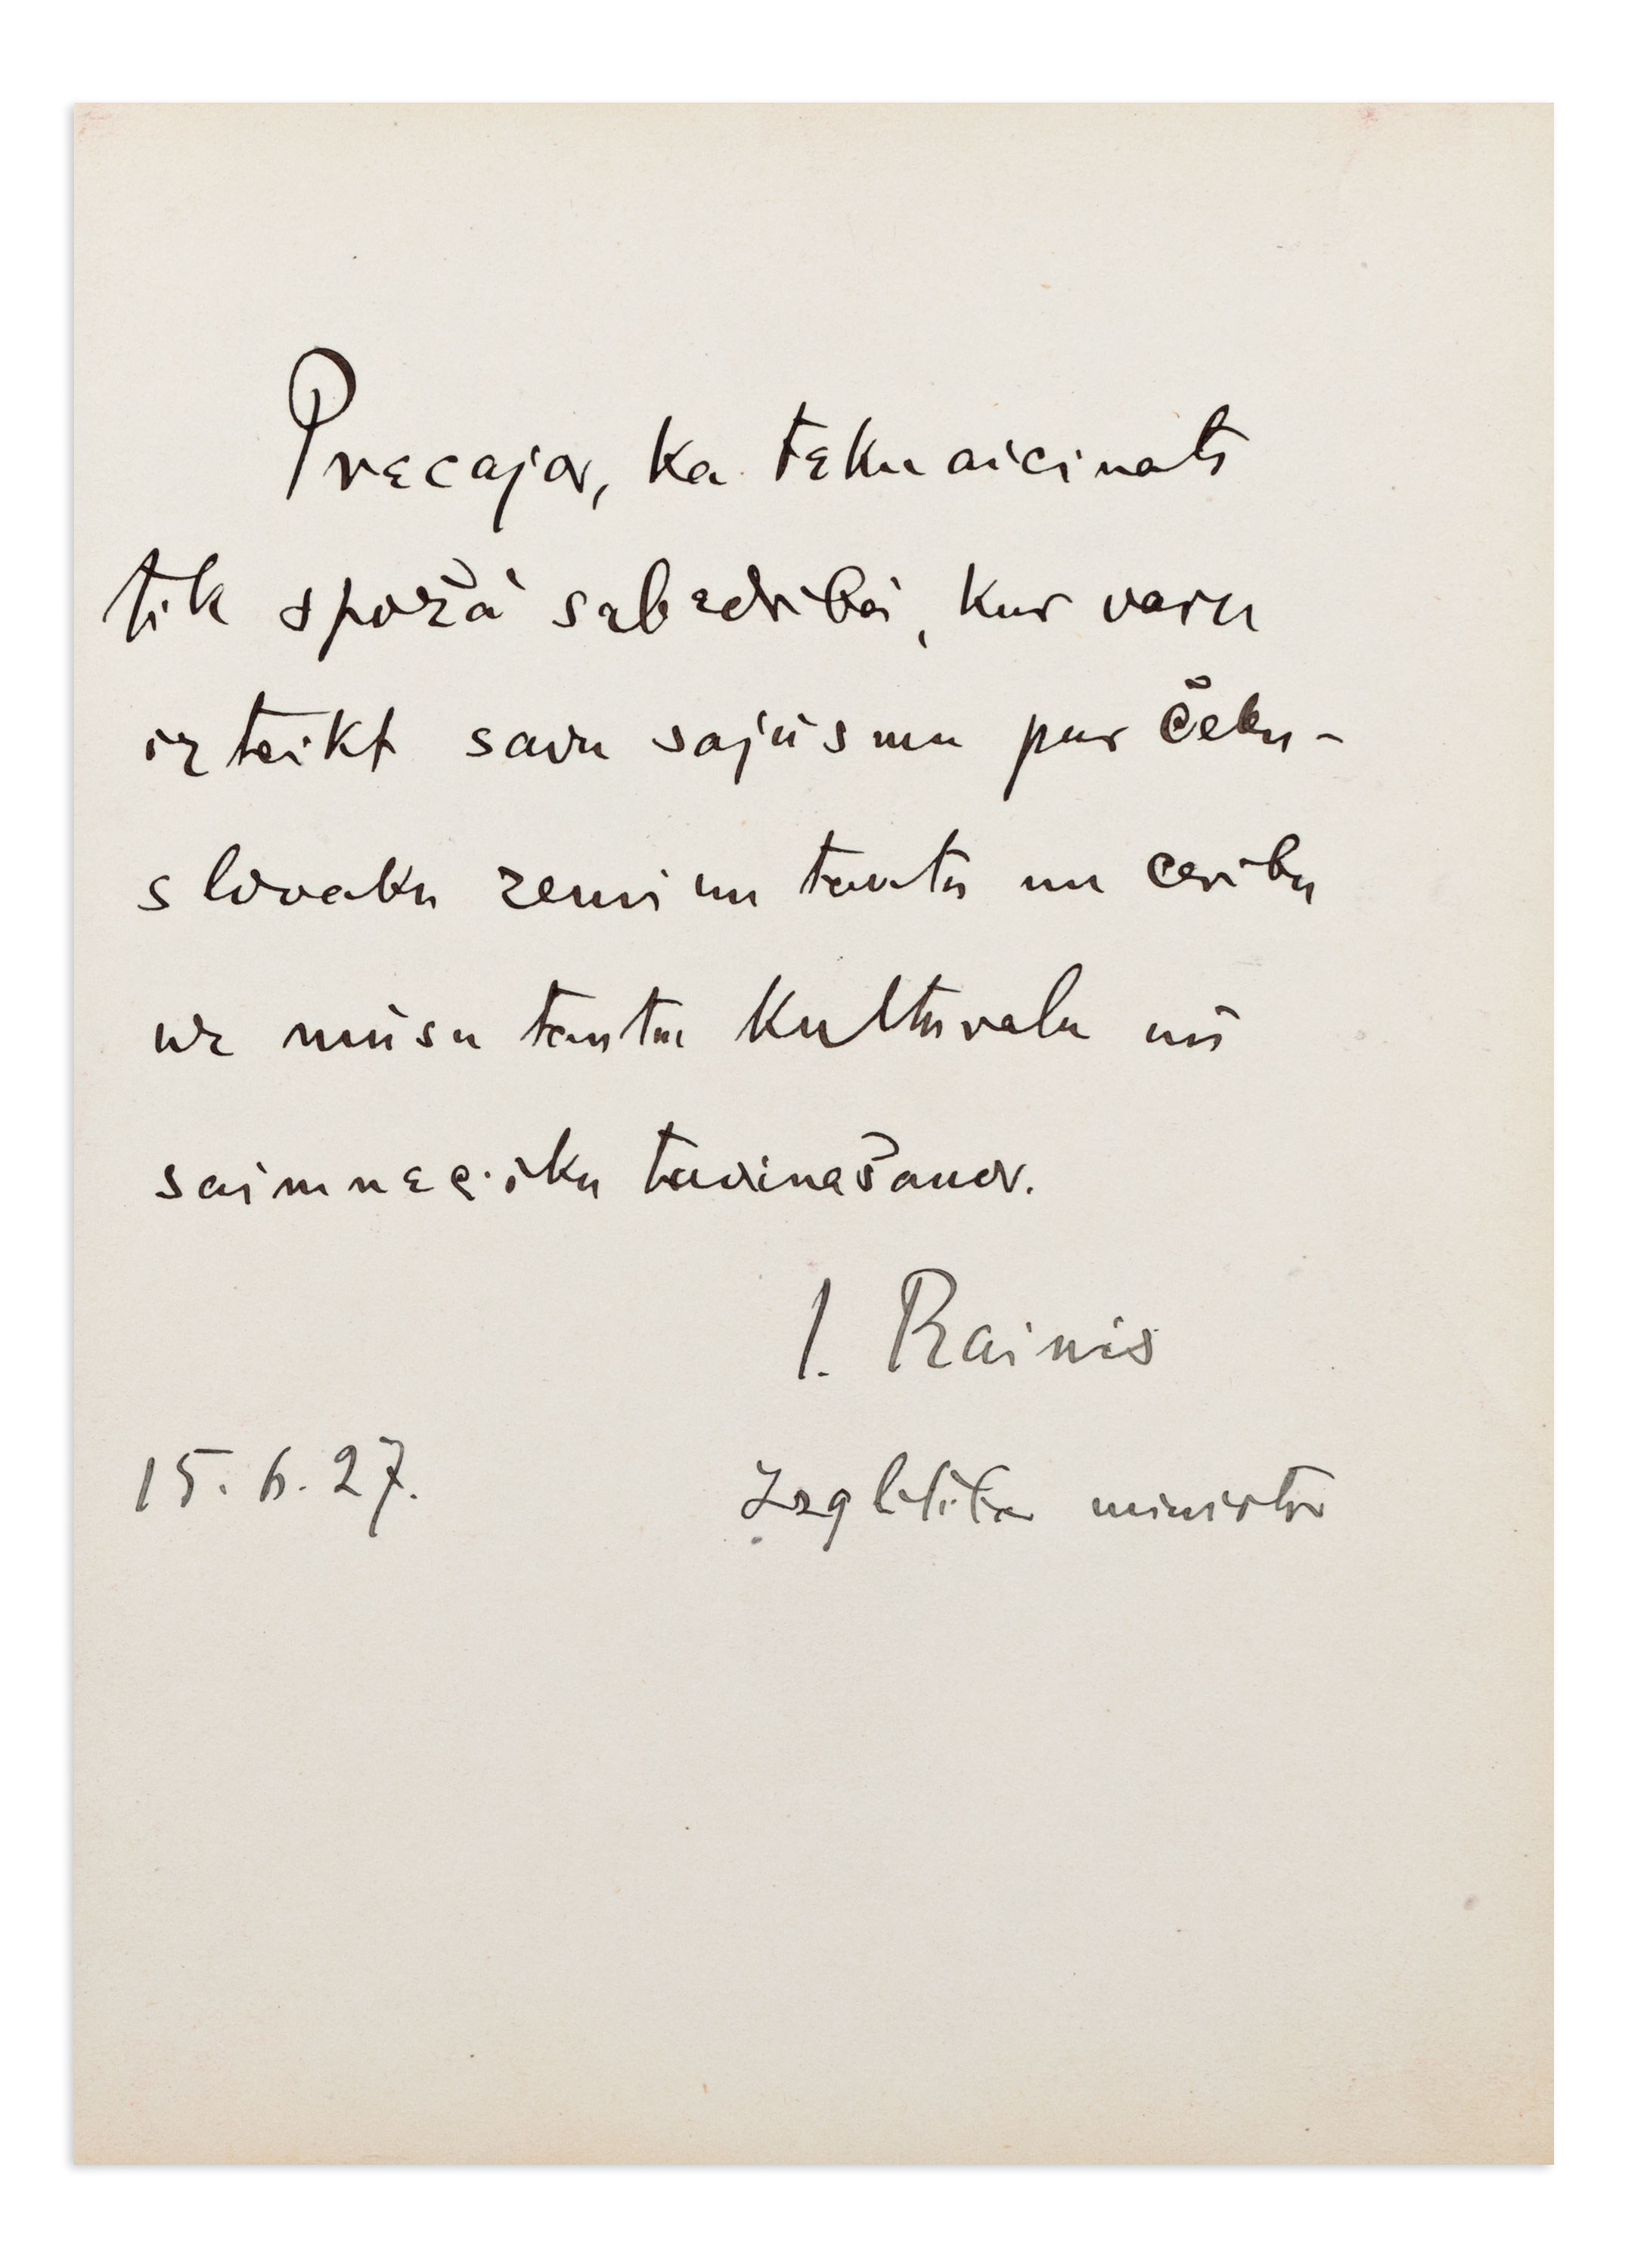 Preecajos, ka teku aicinats
tik spožā sabeedribā, kur varu
izteikt savu sajūsmu par čeku-
slovaku zemi un tautu un ceribu
uz mūsu tautu kulturalu un
saimneecisku tuvinašanos.
J. Rainis
15. 6. 27. Izglitibas ministrs